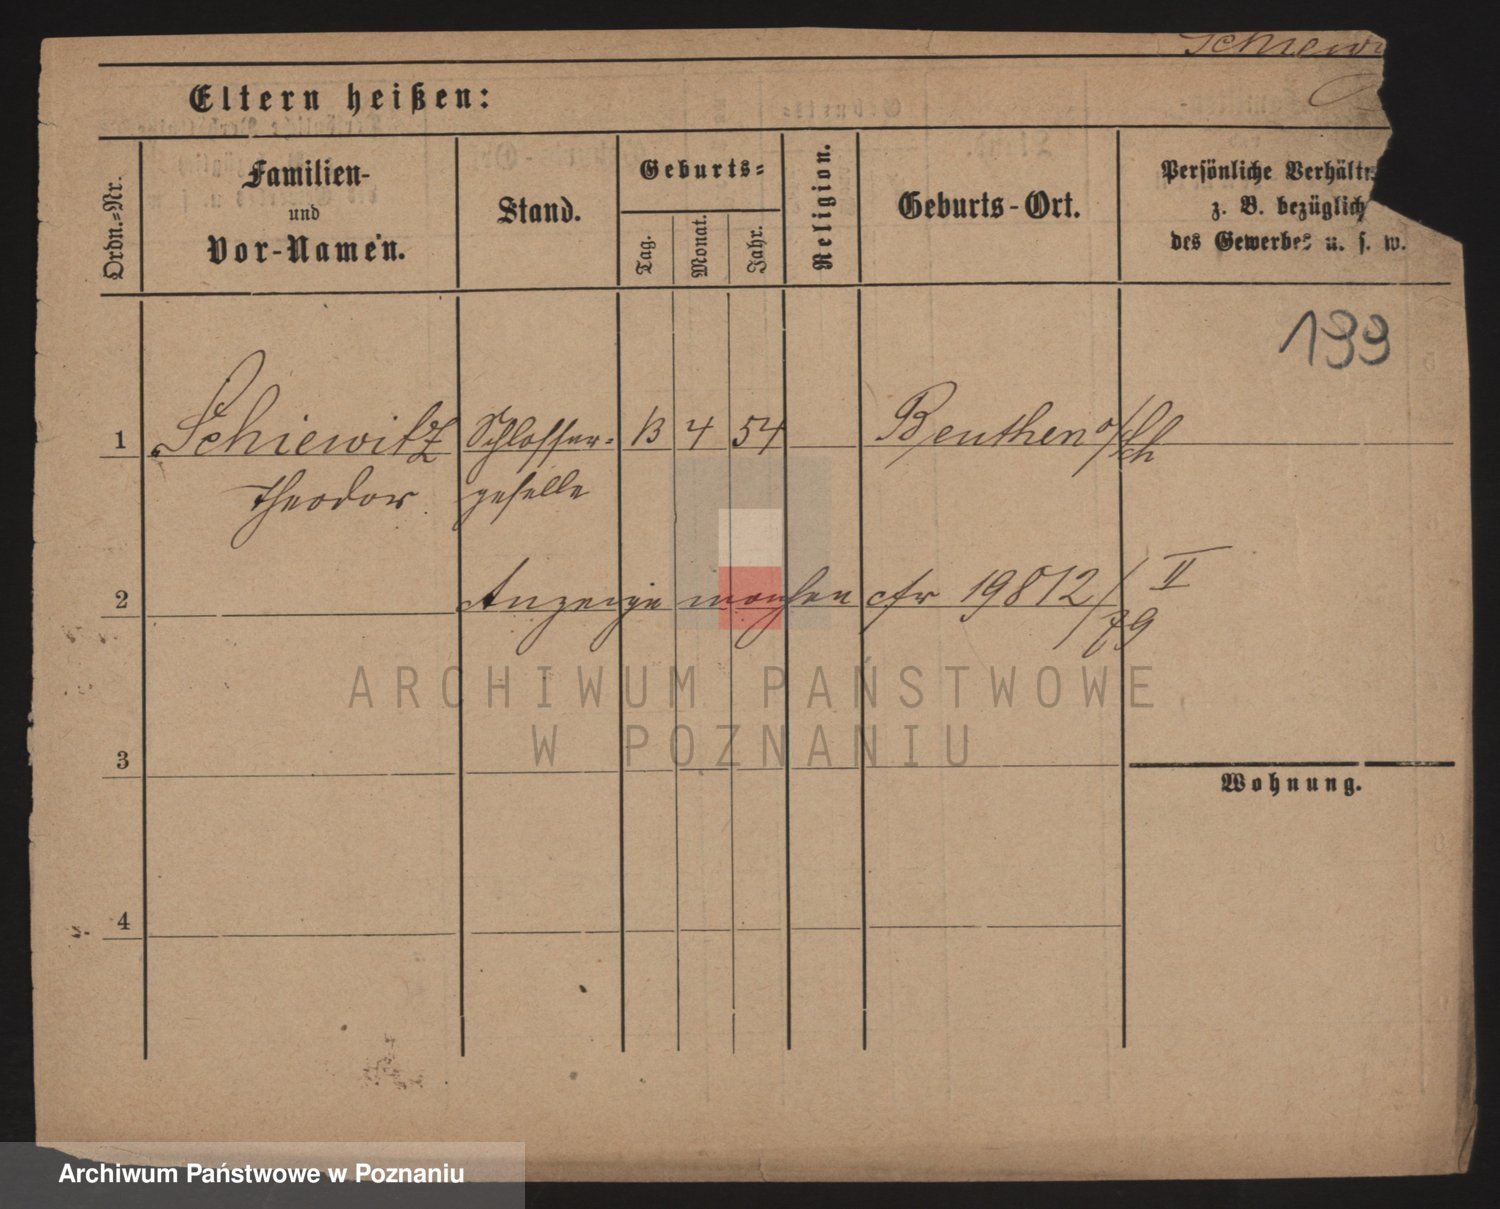 Schiew
Eltern heißen:
Ordn.=Nr.
Familien-
und
Vor-Namen.
Stand.
Geburts=
Tag.
Monat.
Jahr.
Religion.
Geburts-Ort.
Persönliche Verhält
z. B. bezüglich
des Gewerbes u. s. w.
133
1 Schiewitz Schlosser= 13 4 54 Beuthen o/Sch
Theodor geselle
2 Anzeige machen cfr 19812/II
79
ARCHIWUM PAŃSTWOWE
W POZNANIU
3
Wohnung.
4
Archiwum Państwowe w Poznaniu